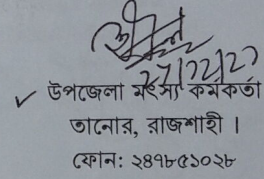 ২৭/১২/২৩
উপজেলা মৎস্য কর্মকর্তা
তানোর, রাজশাহী ।
ফোন: ২৪৭৮৫১০২৮